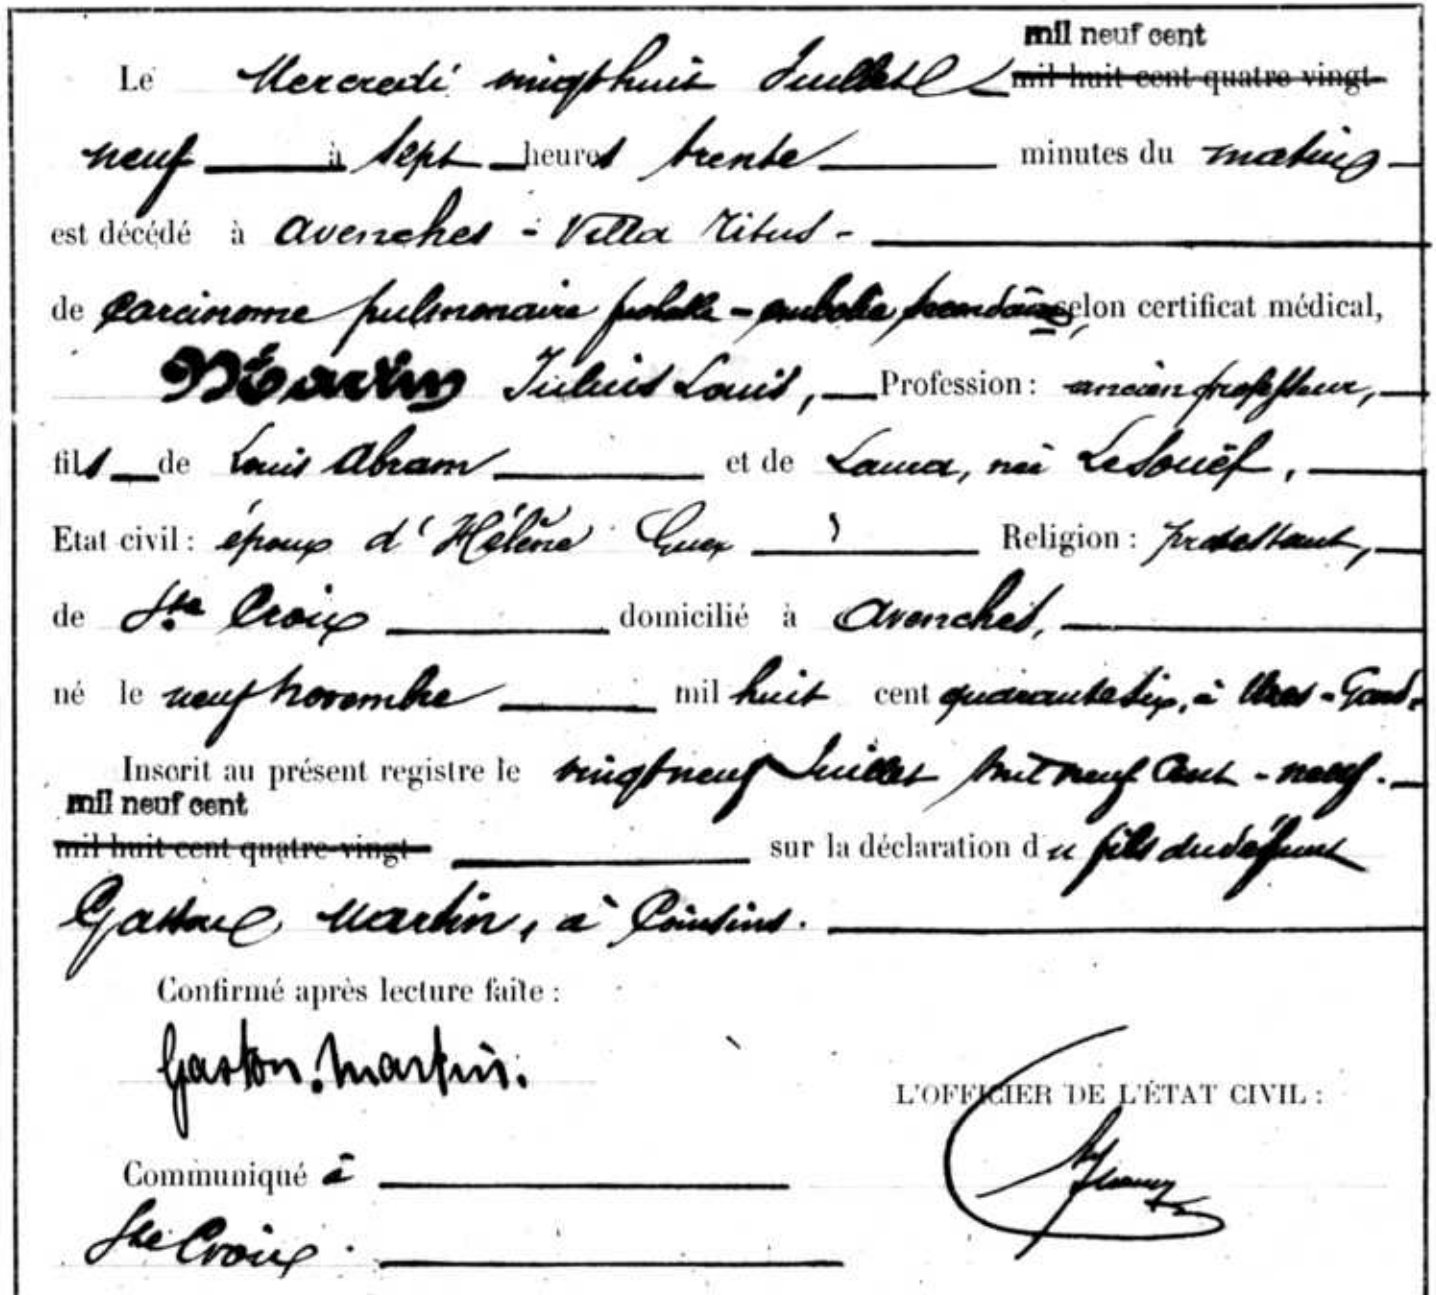 mil neuf cent
Le Mercredi vingthuit Juillet mil huit cent quatre-vingt
neuf à sept heures trente minutes du matin
est décédé à Avenches - Villa Titus -
de Carcinome pulmonaire probable - embolie secondaire, selon certificat médical,
Martin Julius Louis, Profession : ancien professeur,
fils de Louis Abram et de Laura, née LeSouëf,
Etat civil : époux d'Hélène Guex, Religion : protestant,
de Ste Croix domicilié à Avenches,
né le neuf Novembre mil huit cent quarantesix, à
Inscrit au présent registre le vingtneuf Juillet mil neuf Cent - neuf.
mil neuf cent
mil huit cent quatre-vingt sur la déclaration du fils du défunt
Gaston Martin, à Coinsins.
Confirmé après lecture faite :
Gaston. Martin.
L'OFFICIER DE L'ÉTAT CIVIL :
Communiqué à
Ste Croix.